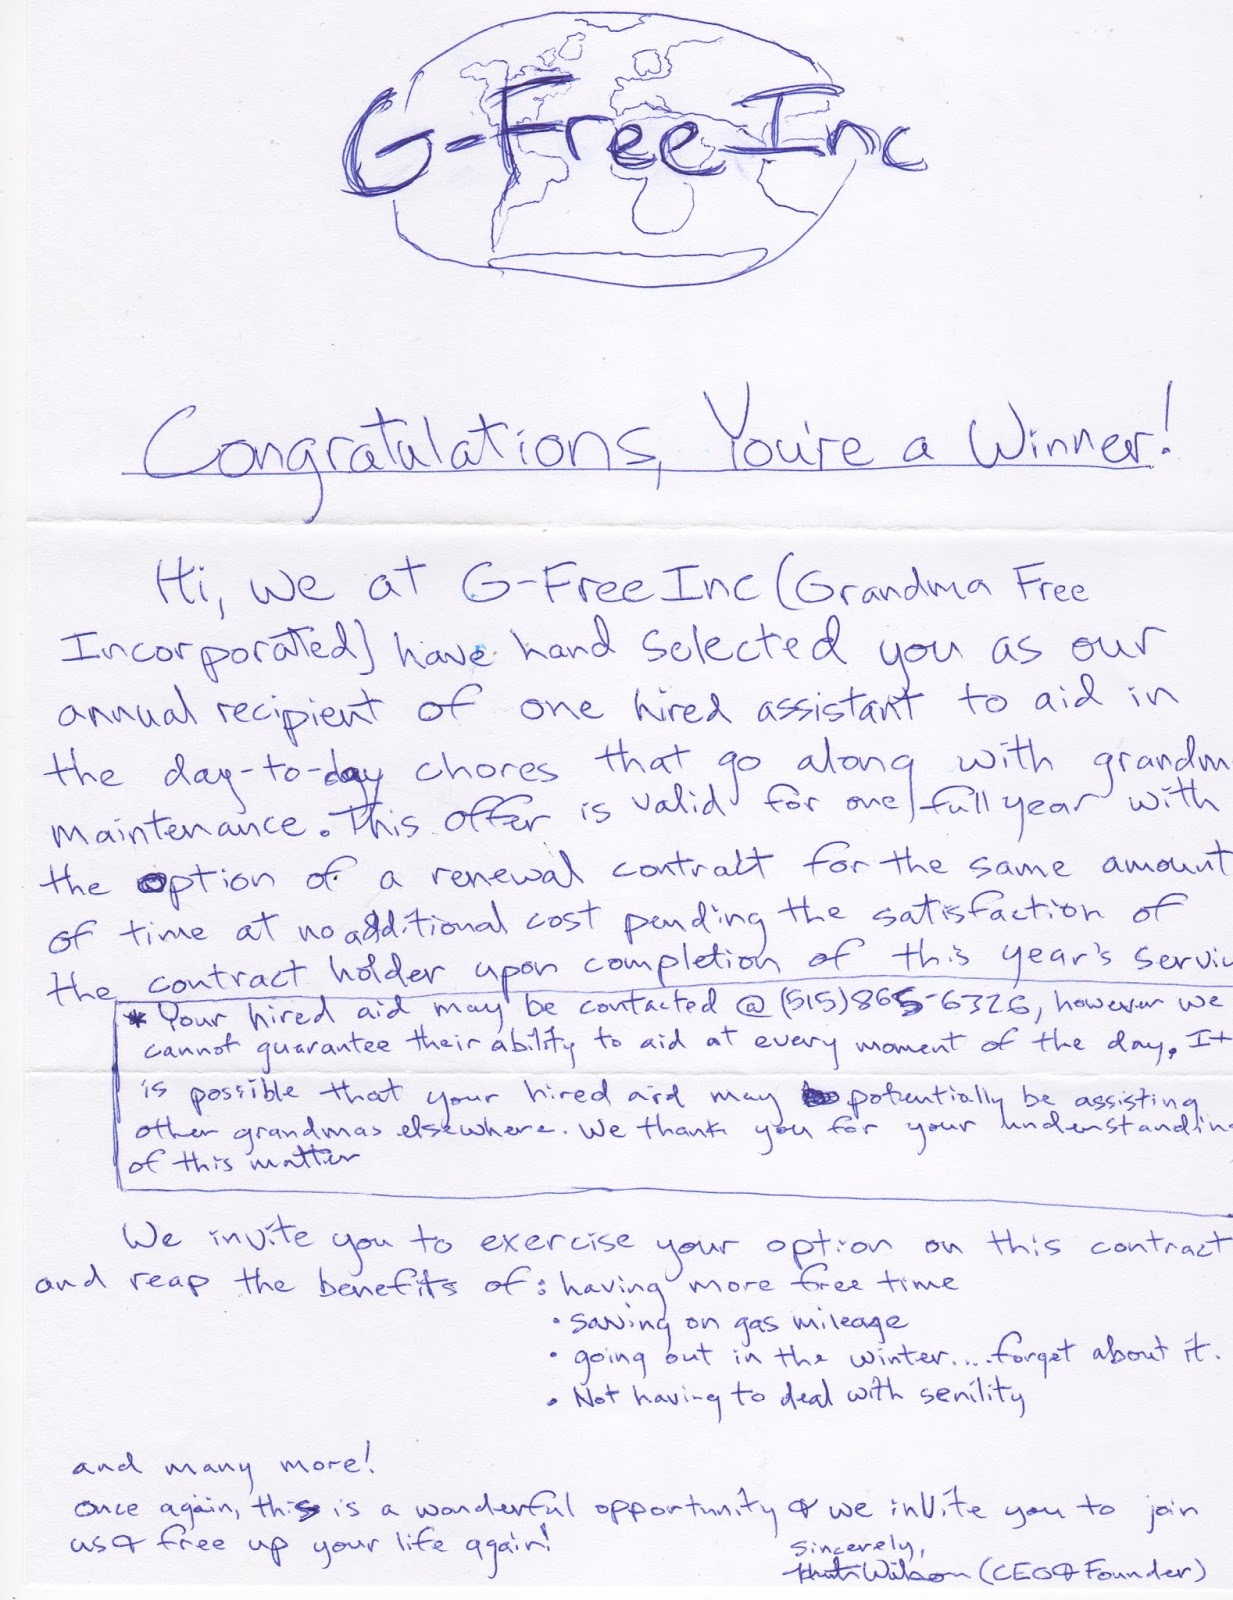 G-Free Inc
Congratulations, You're a Winner!
Hi, we at G-Free Inc (Grandma Free
Incorporated) have hand selected you as our
annual recipient of one hired assistant to aid in
the day-to-day chores that go along with grandm
maintenance. This offer is valid for one full year with
the option of a renewal contract for the same amount
of time at no additional cost pending the satisfaction of
the contract holder upon completion of this year's servic
* Your hired aid may be contacted @ (515)865-6326, however we
cannot guarantee their ability to aid at every moment of the day. It
is possible that your hired aid may potentially be assisting
other grandmas elsewhere. We thank you for your understandin
of this matter
We invite you to exercise your option on this contract
and reap the benefits of: having more free time
• saving on gas mileage
• going out in the winter....forget about it.
• Not having to deal with senility
and many more!
Once again, this is a wonderful opportunity & we invite you to join
us & free up your life again!
Sincerely,
Wilson (CEO & Founder)